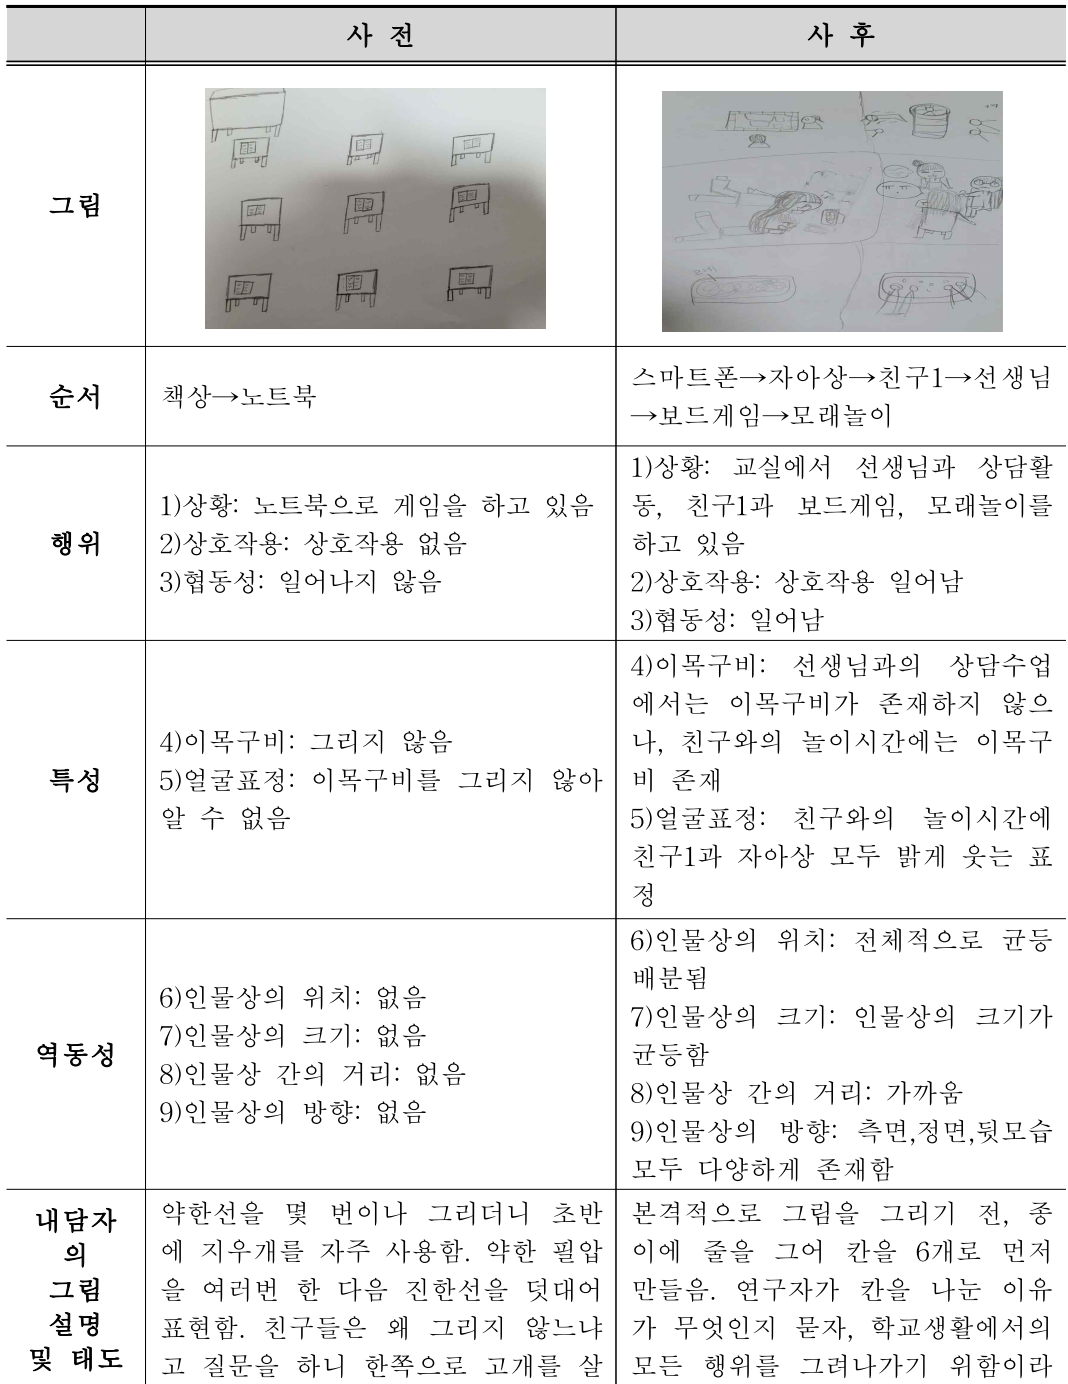 사 전
사 후
그림
순서
책상→노트북
스마트폰→자아상→친구1→선생님
→보드게임→모래놀이
행위
1)상황: 노트북으로 게임을 하고 있음
2)상호작용: 상호작용 없음
3)협동성: 일어나지 않음
1)상황: 교실에서 선생님과 상담활
동, 친구1과 보드게임, 모래놀이를
하고 있음
2)상호작용: 상호작용 일어남
3)협동성: 일어남
특성
4)이목구비: 그리지 않음
5)얼굴표정: 이목구비를 그리지 않아
알 수 없음
4)이목구비: 선생님과의 상담수업
에서는 이목구비가 존재하지 않으
나, 친구와의 놀이시간에는 이목구
비 존재
5)얼굴표정: 친구와의 놀이시간에
친구1과 자아상 모두 밝게 웃는 표
정
역동성
6)인물상의 위치: 없음
7)인물상의 크기: 없음
8)인물상 간의 거리: 없음
9)인물상의 방향: 없음
6)인물상의 위치: 전체적으로 균등
배분됨
7)인물상의 크기: 인물상의 크기가
균등함
8)인물상 간의 거리: 가까움
9)인물상의 방향: 측면,정면,뒷모습
모두 다양하게 존재함
내담자
의
그림
설명
및 태도
약한선을 몇 번이나 그리더니 초반
에 지우개를 자주 사용함. 약한 필압
을 여러번 한 다음 진한선을 덧대어
표현함. 친구들은 왜 그리지 않느냐
고 질문을 하니 한쪽으로 고개를 살
본격적으로 그림을 그리기 전, 종
이에 줄을 그어 칸을 6개로 먼저
만들음. 연구자가 칸을 나눈 이유
가 무엇인지 묻자, 학교생활에서의
모든 행위를 그려나가기 위함이라